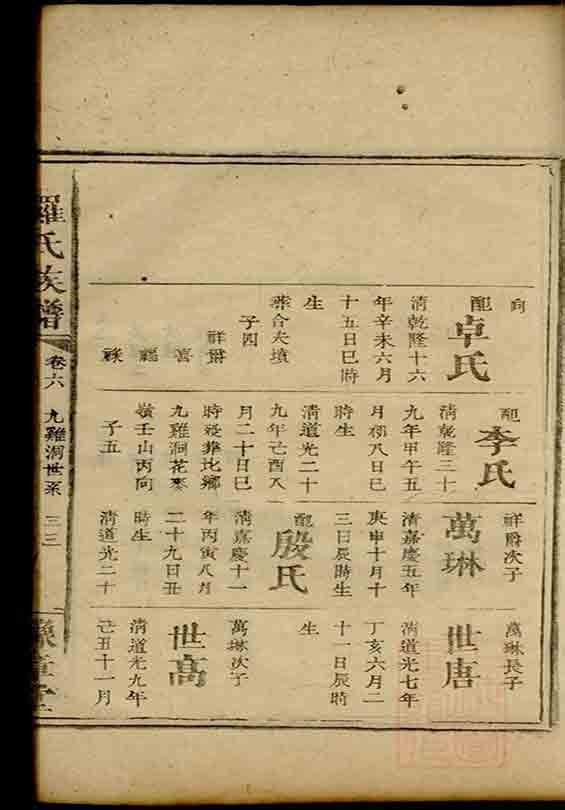 向
配
卓氏
清乾隆十六
年辛未六月
十五日巳時
生
葬合夫墳
子四
祥爵
喜
福
祿
配
李氏
清乾隆三十
九年甲午五
月初八日巳
時生
清道光二十
九年己酉八
月二十日巳
時歿葬比鄉
九雞洞花來
嶺壬山丙向
子五
祥爵次子
萬琳
清嘉慶五年
庚申十月十
三日辰時生
配
殷氏
清嘉慶十一
年丙寅八月
二十九日丑
時生
清道光二十
萬琳長子
世唐
清道光七年
丁亥六月二
十一日辰時
生
萬琳次子
世高
清道光九年
己丑十一月
羅氏族譜
卷六
九雞洞世系
三三
豫章堂